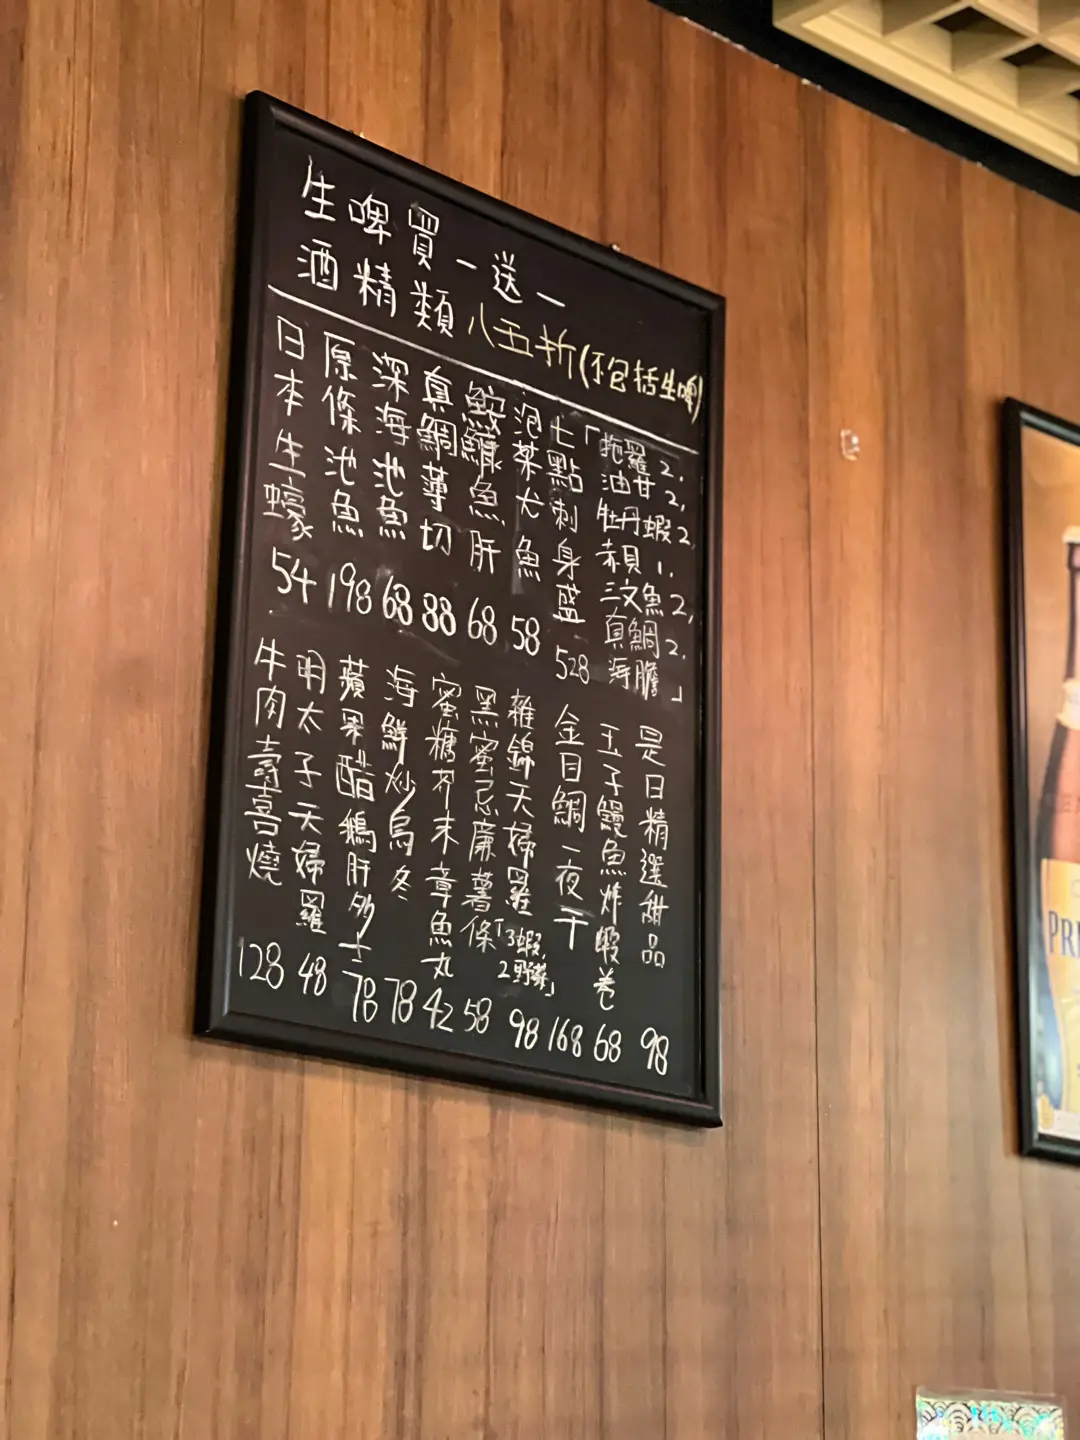 生啤買一送一
酒精類八五折(不包括生啤)
「拖羅2,
油甘2,
牡丹蝦2,
赤貝1,
三文魚2,
真鯛2,
海膽」
七點刺身盛 528
泡菜犬魚 58
鮟鱇魚肝 68
真鯛薄切 88
深海池魚 68
原條池魚 198
日本生蠔 54
是日精選甜品 98
王子鰻魚炸蝦卷 68
金目鯛一夜干 168
雜錦天婦羅「3蝦,2野菜」 98
黑蜜忌廉薯條 58
蜜糖芥末章魚丸 42
海鮮炒烏冬 78
蘋果醋鵝肝多士 78
明太子天婦羅 48
牛肉壽喜燒 128
PR